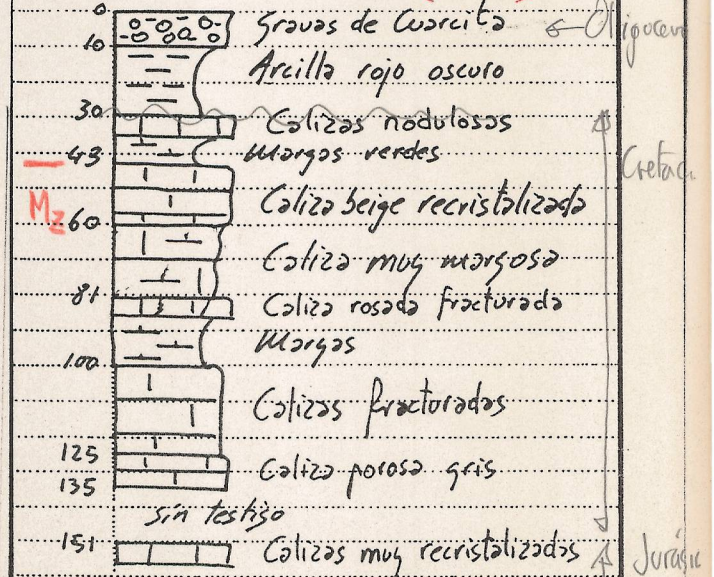 0
Gravas de Cuarcita ← Oligoceno
10
Arcilla rojo oscuro
30
Calizas nodulosas
43 Margas verdes
Cretac.
Mz
Caliza beige recristalizada
60
Caliza muy margosa
81
Caliza rosada fracturada
Margas
100
Calizas fracturadas
125
Caliza porosa gris
135
sin testigo
151 Calizas muy recristalizadas Jurásic